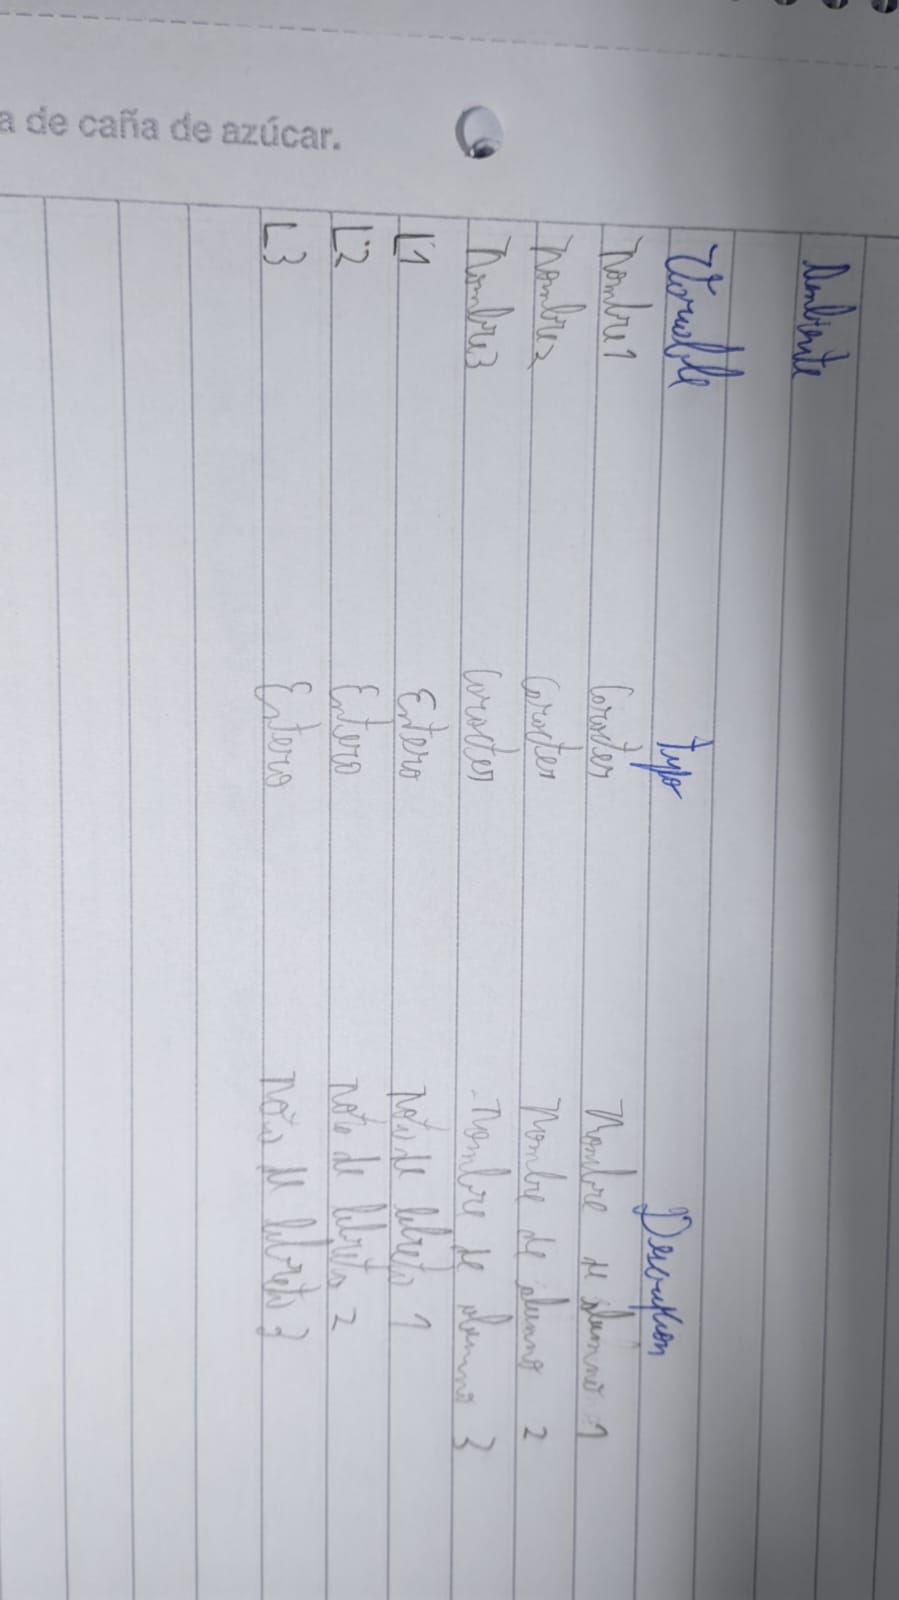 Ambiente
Variable tipo Descripcion
Nombre1 Caracter Nombre de alumno 1
Nombre2 Caracter Nombre de alumno 2
Nombre3 Caracter Nombre de alumno 3
L1 Entero nota de libreta 1
L2 Entero nota de libreta 2
L3 Entero nota de libreta 3
a de caña de azúcar.